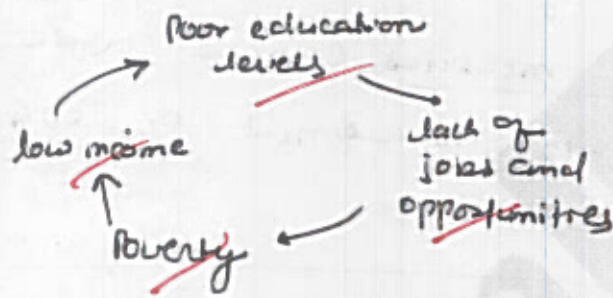 Poor education
levels
lack of
jobs and
opportunitres
Poverty
low income